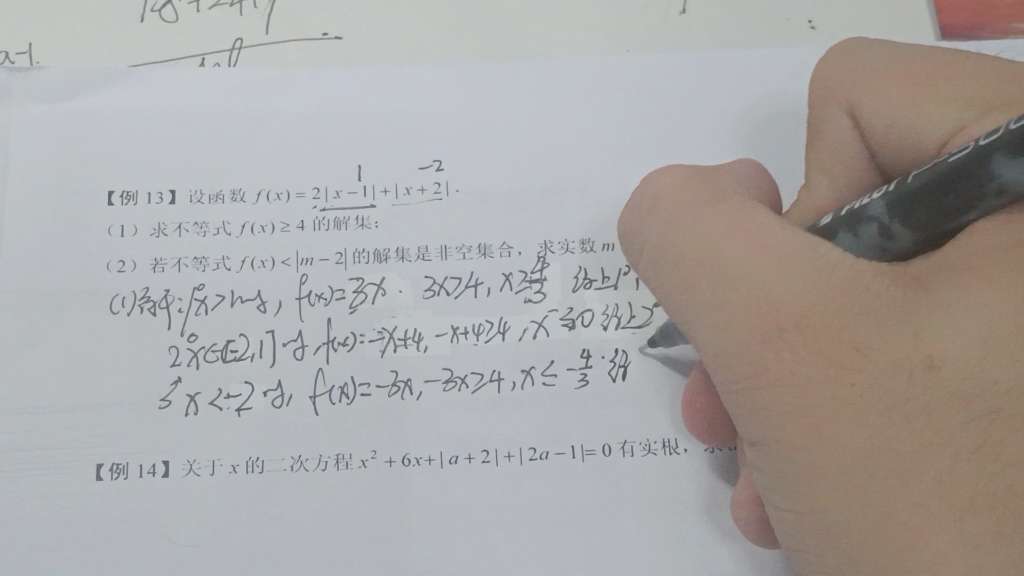 a-1.
1
-2
【例 13】设函数 f(x)=2|x-1|+|x+2|.
(1) 求不等式 f(x)≥4 的解集;
(2) 若不等式 f(x)<|m-2|的解集是非空集合,求实数 m
(1) 1° x>1时, f(x)=3x. 3x≥4, x≥4/3 综上1°,
2° x∈[-2,1]时, f(x)=-x+4, -x+4≥4, x≤0 综上2°
3° x<-2时, f(x)=-3x, -3x≥4, x≤-4/3. 综
【例 14】关于 x 的二次方程 x²+6x+|a+2|+|2a-1|=0 有实根,